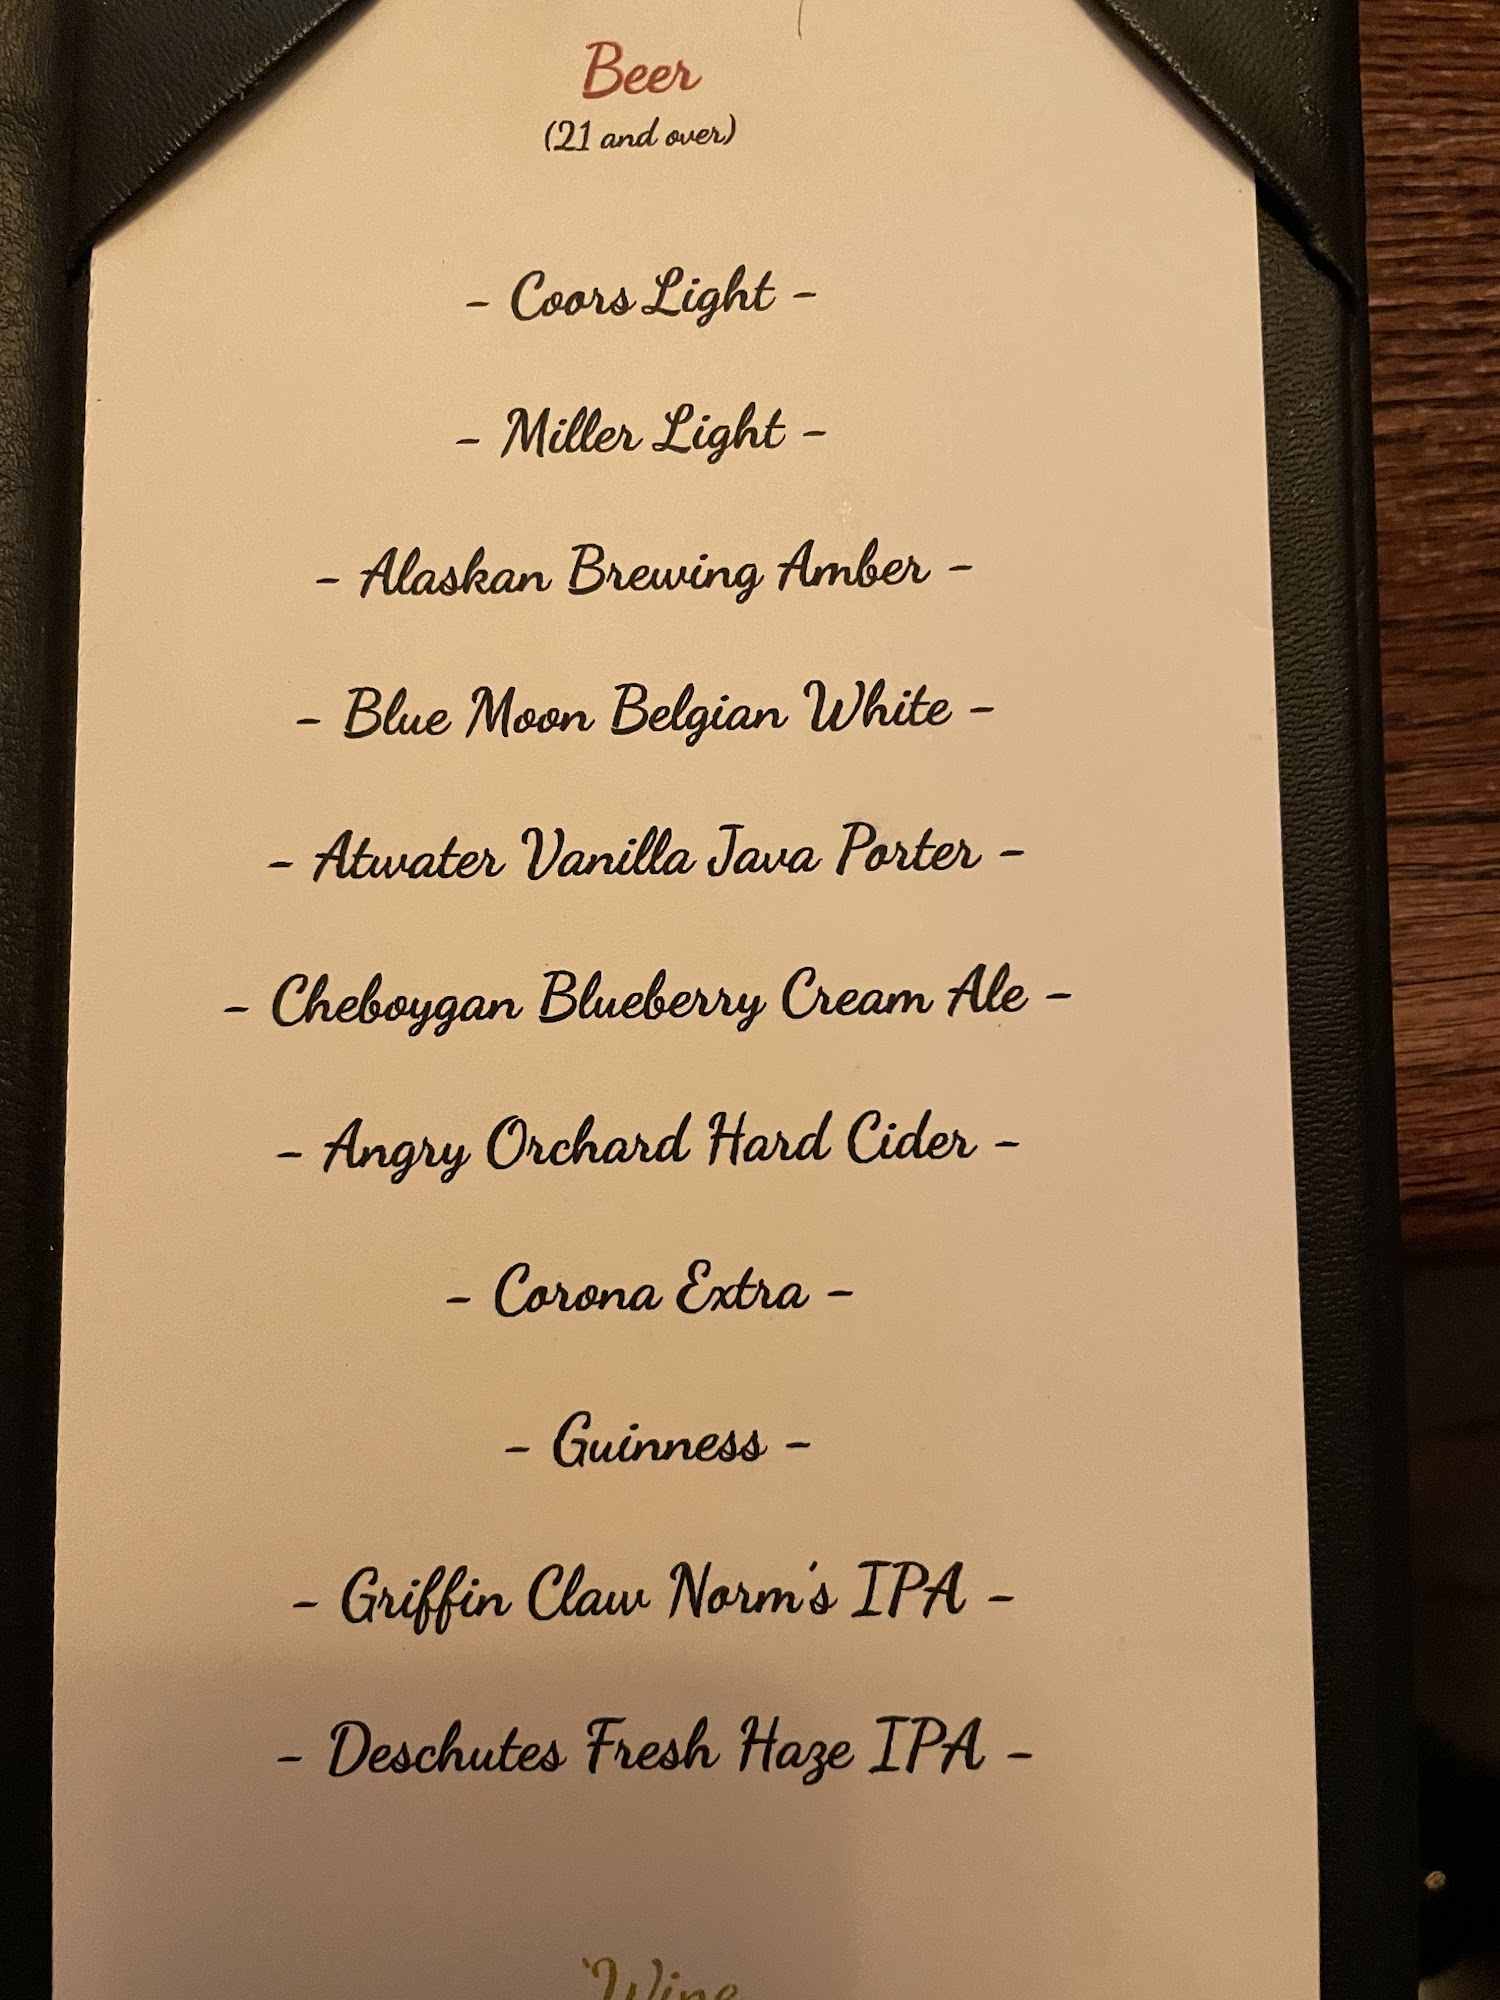 Beer
(21 and over)
- Coors Light -
- Miller Light -
- Alaskan Brewing Amber -
- Blue Moon Belgian White -
- Atwater Vanilla Java Porter -
- Cheboygan Blueberry Cream Ale -
- Angry Orchard Hard Cider -
- Corona Extra -
- Guinness -
- Griffin Claw Norm's IPA -
- Deschutes Fresh Haze IPA -
Wine